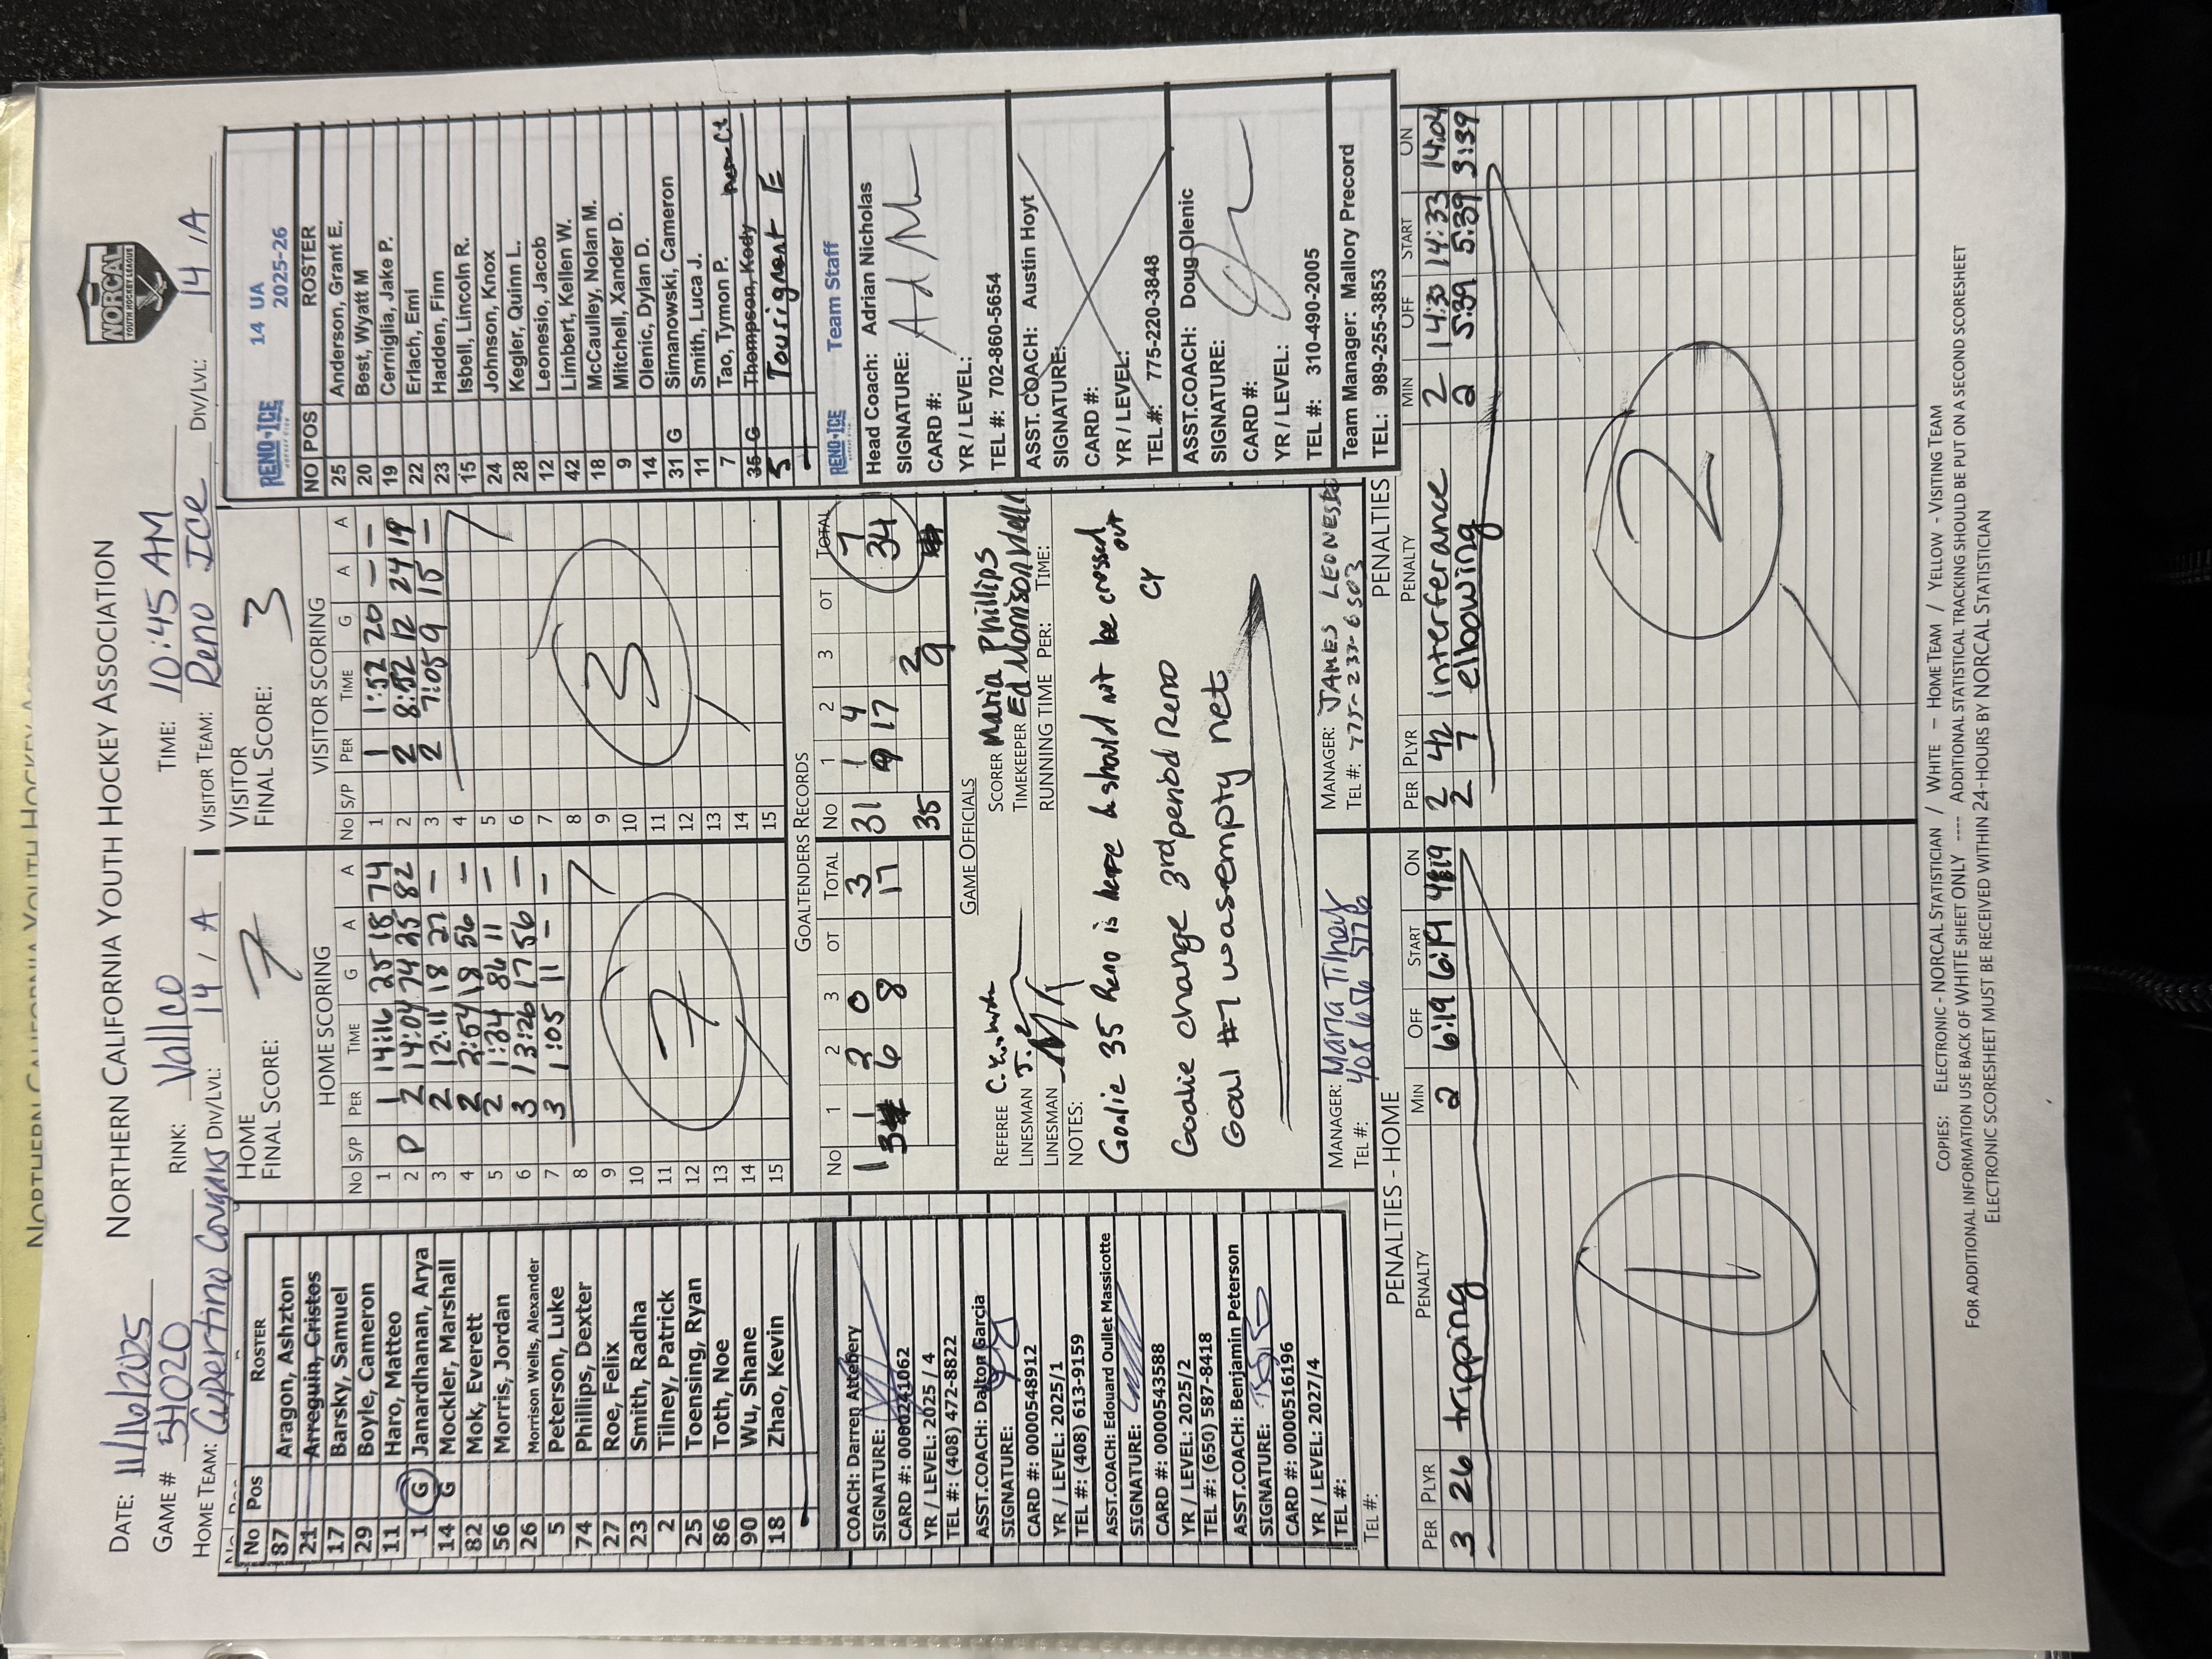 NORTHERN CALIFORNIA YOUTH HOCKEY ASSOCIATION
NORCAL
YOUTH HOCKEY LEAGUE
DATE: 11/16/2025
GAME # 54020 RINK: Vallco TIME: 10:45 AM
HOME TEAM: Cupertino Cougars DIV/LVL: 14 / A VISITOR TEAM: Reno Ice DIV/LVL: 14 / A
No Pos ROSTER
87 Aragon, Ashzton
21 Arreguin, Cristos
17 Barsky, Samuel
29 Boyle, Cameron
11 Haro, Matteo
1 G Janardhanan, Arya
14 G Mockler, Marshall
82 Mok, Everett
56 Morris, Jordan
26 Morrison Wells, Alexander
5 Peterson, Luke
74 Phillips, Dexter
27 Roe, Felix
23 Smith, Radha
2 Tilney, Patrick
25 Toensing, Ryan
86 Toth, Noe
90 Wu, Shane
18 Zhao, Kevin
COACH: Darren Attebery
SIGNATURE:
CARD #: 0000241062
YR / LEVEL: 2025 / 4
TEL #: (408) 472-8822
ASST.COACH: Dalton Garcia
SIGNATURE:
CARD #: 0000548912
YR / LEVEL: 2025/1
TEL #: (408) 613-9159
ASST.COACH: Edouard Oullet Massicotte
SIGNATURE:
CARD #: 0000543588
YR / LEVEL: 2025/2
TEL #: (650) 587-8418
ASST.COACH: Benjamin Peterson
SIGNATURE:
CARD #: 0000516196
YR / LEVEL: 2027/4
TEL #:
TEL #:
HOME
FINAL SCORE: 7
HOME SCORING
No S/P PER TIME G A A
1 1 14:16 25 18 74
2 P 2 14:04 74 25 82
3 2 12:11 18 27 —
4 2 2:54 18 56 —
5 2 1:34 86 11 —
6 3 13:26 17 56 —
7 3 1:05 11 — —
8
9
10
11
12
13
14
15
7
VISITOR
FINAL SCORE: 3
VISITOR SCORING
No S/P PER TIME G A A
1 1 1:52 20 — —
2 2 8:52 12 24 19
3 2 7:05 9 15 —
4
5
6
7
8
9
10
11
12
13
14
15
3
GOALTENDERS RECORDS
No 1 2 3 OT TOTAL
1 1 2 0 3
3 6 8 17
No 1 2 3 OT TOTAL
31 1 4 7
9 17 34
35 2
9
GAME OFFICIALS
REFEREE
LINESMAN
LINESMAN
SCORER Maria Phillips
TIMEKEEPER Ed Morrison Wells
RUNNING TIME PER: TIME:
NOTES:
Goalie 35 Reno is here & should not be crossed out
CY
Goalie change 3rd period Reno
Goal #7 was empty net
MANAGER: Maria Tilney
TEL #: 408 656 5776
MANAGER: JAMES LEONESIO
TEL #: 775-237-6503
RENO ICE 14 UA
2025-26
NO POS ROSTER
25 Anderson, Grant E.
20 Best, Wyatt M
19 Cerniglia, Jake P.
22 Erlach, Emi
23 Hadden, Finn
15 Isbell, Lincoln R.
24 Johnson, Knox
28 Kegler, Quinn L.
12 Leonesio, Jacob
42 Limbert, Kellen W.
18 McCaulley, Nolan M.
9 Mitchell, Xander D.
14 Olenic, Dylan D.
31 G Simanowski, Cameron
11 Smith, Luca J.
7 Tao, Tymon P.
35 G Thompson, Kody
5 Tousignant E
RENO ICE Team Staff
Head Coach: Adrian Nicholas
SIGNATURE:
CARD #:
YR / LEVEL:
TEL #: 702-860-5654
ASST. COACH: Austin Hoyt
SIGNATURE:
CARD #:
YR / LEVEL:
TEL #: 775-220-3848
ASST.COACH: Doug Olenic
SIGNATURE:
CARD #:
YR / LEVEL:
TEL #: 310-490-2005
Team Manager: Mallory Precord
TEL: 989-255-3853
PENALTIES - HOME
PER PLYR PENALTY MIN OFF START ON
3 26 tripping 2 6:19 6:19 4:19
1
PENALTIES
PER PLYR PENALTY MIN OFF START ON
2 42 interferance 2 14:33 14:33 14:04
2 7 elbowing 2 5:39 5:39 3:39
2
COPIES: ELECTRONIC - NORCAL STATISTICIAN / WHITE — HOME TEAM / YELLOW - VISITING TEAM
FOR ADDITIONAL INFORMATION USE BACK OF WHITE SHEET ONLY ---- ADDITIONAL STATISTICAL TRACKING SHOULD BE PUT ON A SECOND SCORESHEET
ELECTRONIC SCORESHEET MUST BE RECEIVED WITHIN 24-HOURS BY NORCAL STATISTICIAN